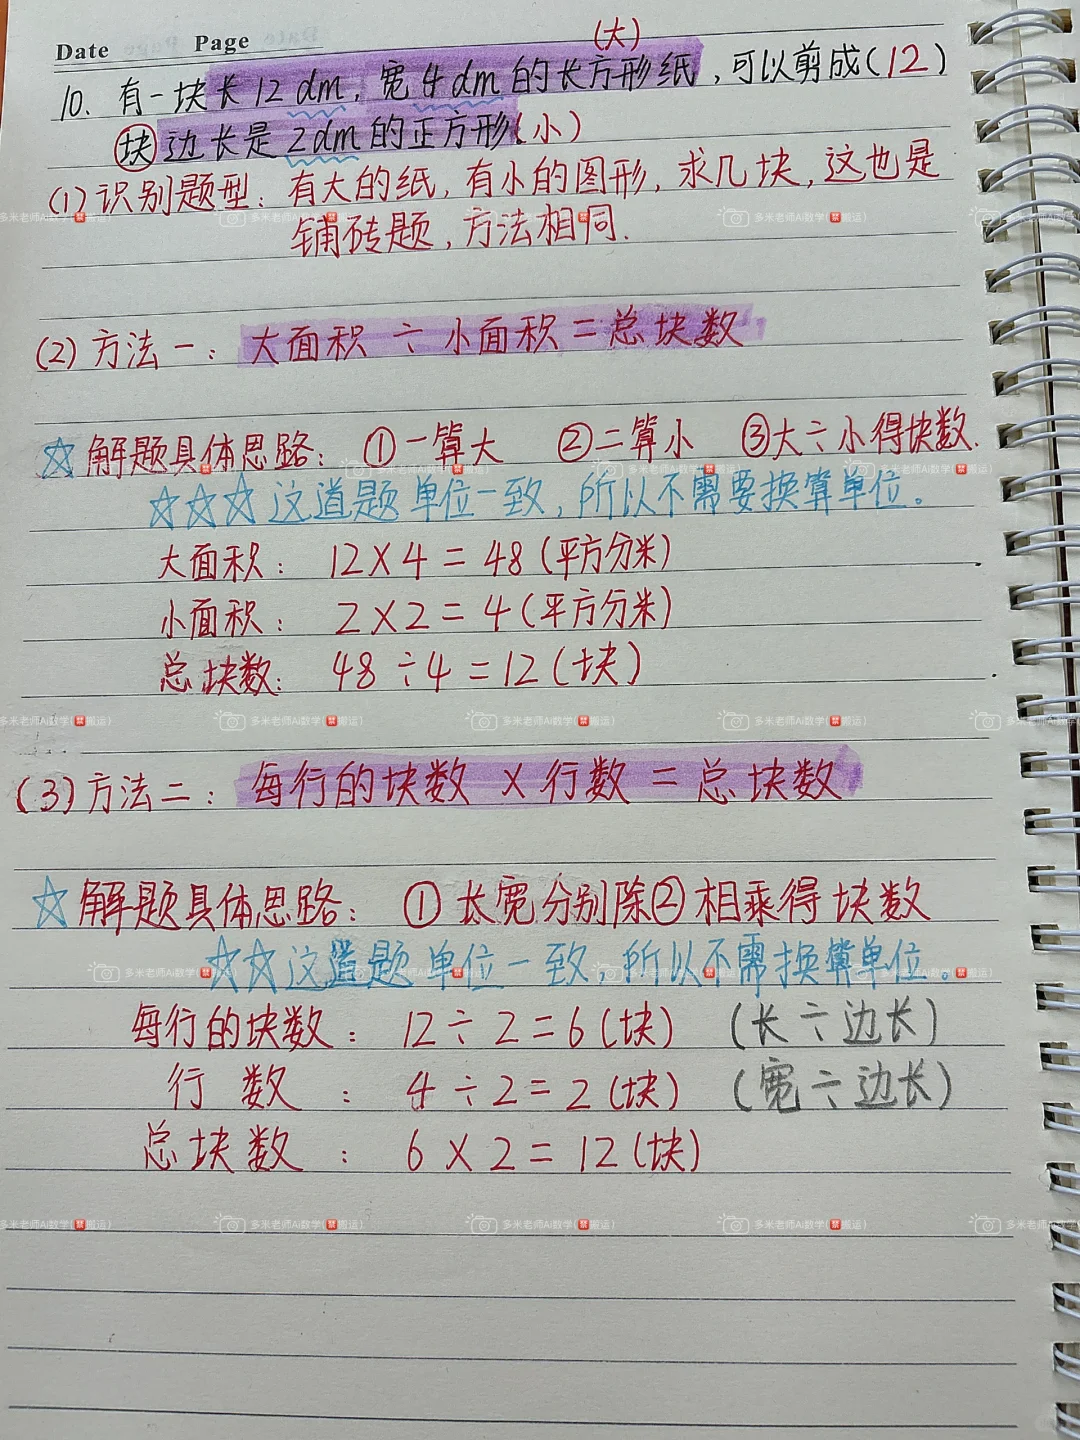 Date Page
(大)
10. 有一块长12dm，宽4dm的长方形纸，可以剪成(12)
块边长是2dm的正方形(小)
(1)识别题型：有大的纸，有小的图形，求几块，这也是
铺砖题，方法相同.
(2)方法一：大面积÷小面积=总块数
☆解题具体思路：①一算大 ②二算小 ③大÷小得块数.
☆☆☆这道题单位一致，所以不需要换算单位。
大面积：12×4=48(平方分米)
小面积：2×2=4(平方分米)
总块数：48÷4=12(块)
(3)方法二：每行的块数×行数=总块数
☆解题具体思路：①长宽分别除②相乘得块数
☆☆这道题单位一致，所以不需换算单位。
每行的块数：12÷2=6(块) (长÷边长)
行数：4÷2=2(块) (宽÷边长)
总块数：6×2=12(块)
多米老师Ai数学(禁搬运)